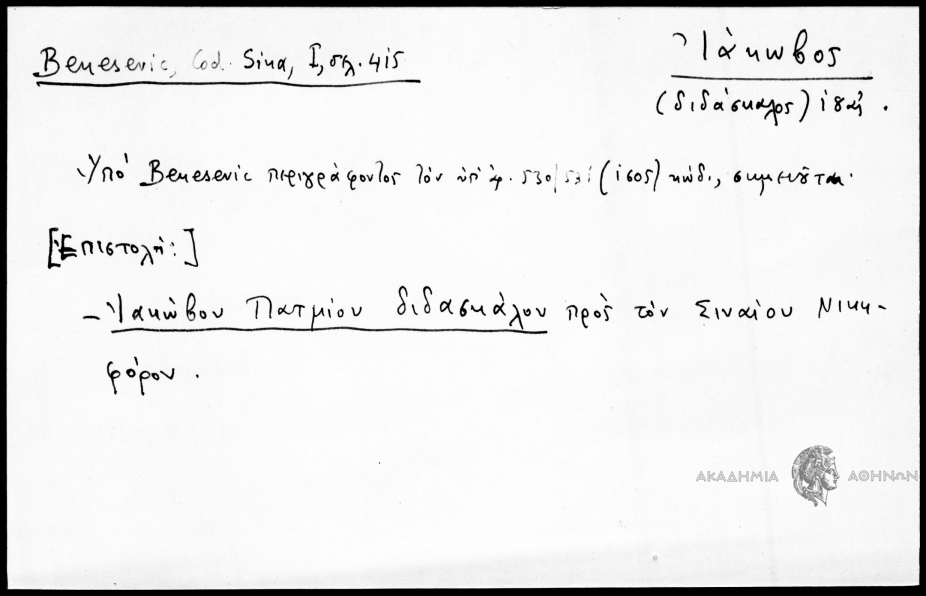 Benesevic, Cod. Sina, I, σελ. 415
Ἰάκωβος
(διδάσκαλος) ιη΄ αἰ.
Ὑπό Benesevic περιγράφοντος τόν ὑπ' ἀρ. 530/531 (ιοος) κώδ., σημειοῦται
[Ἐπιστολή:]
– Ἰακώβου Πατμίου διδασκάλου πρός τόν Σιναίου Νικη-
φόρον.
ΑΚΑΔΗΜΙΑ ΑΘΗΝΩΝ